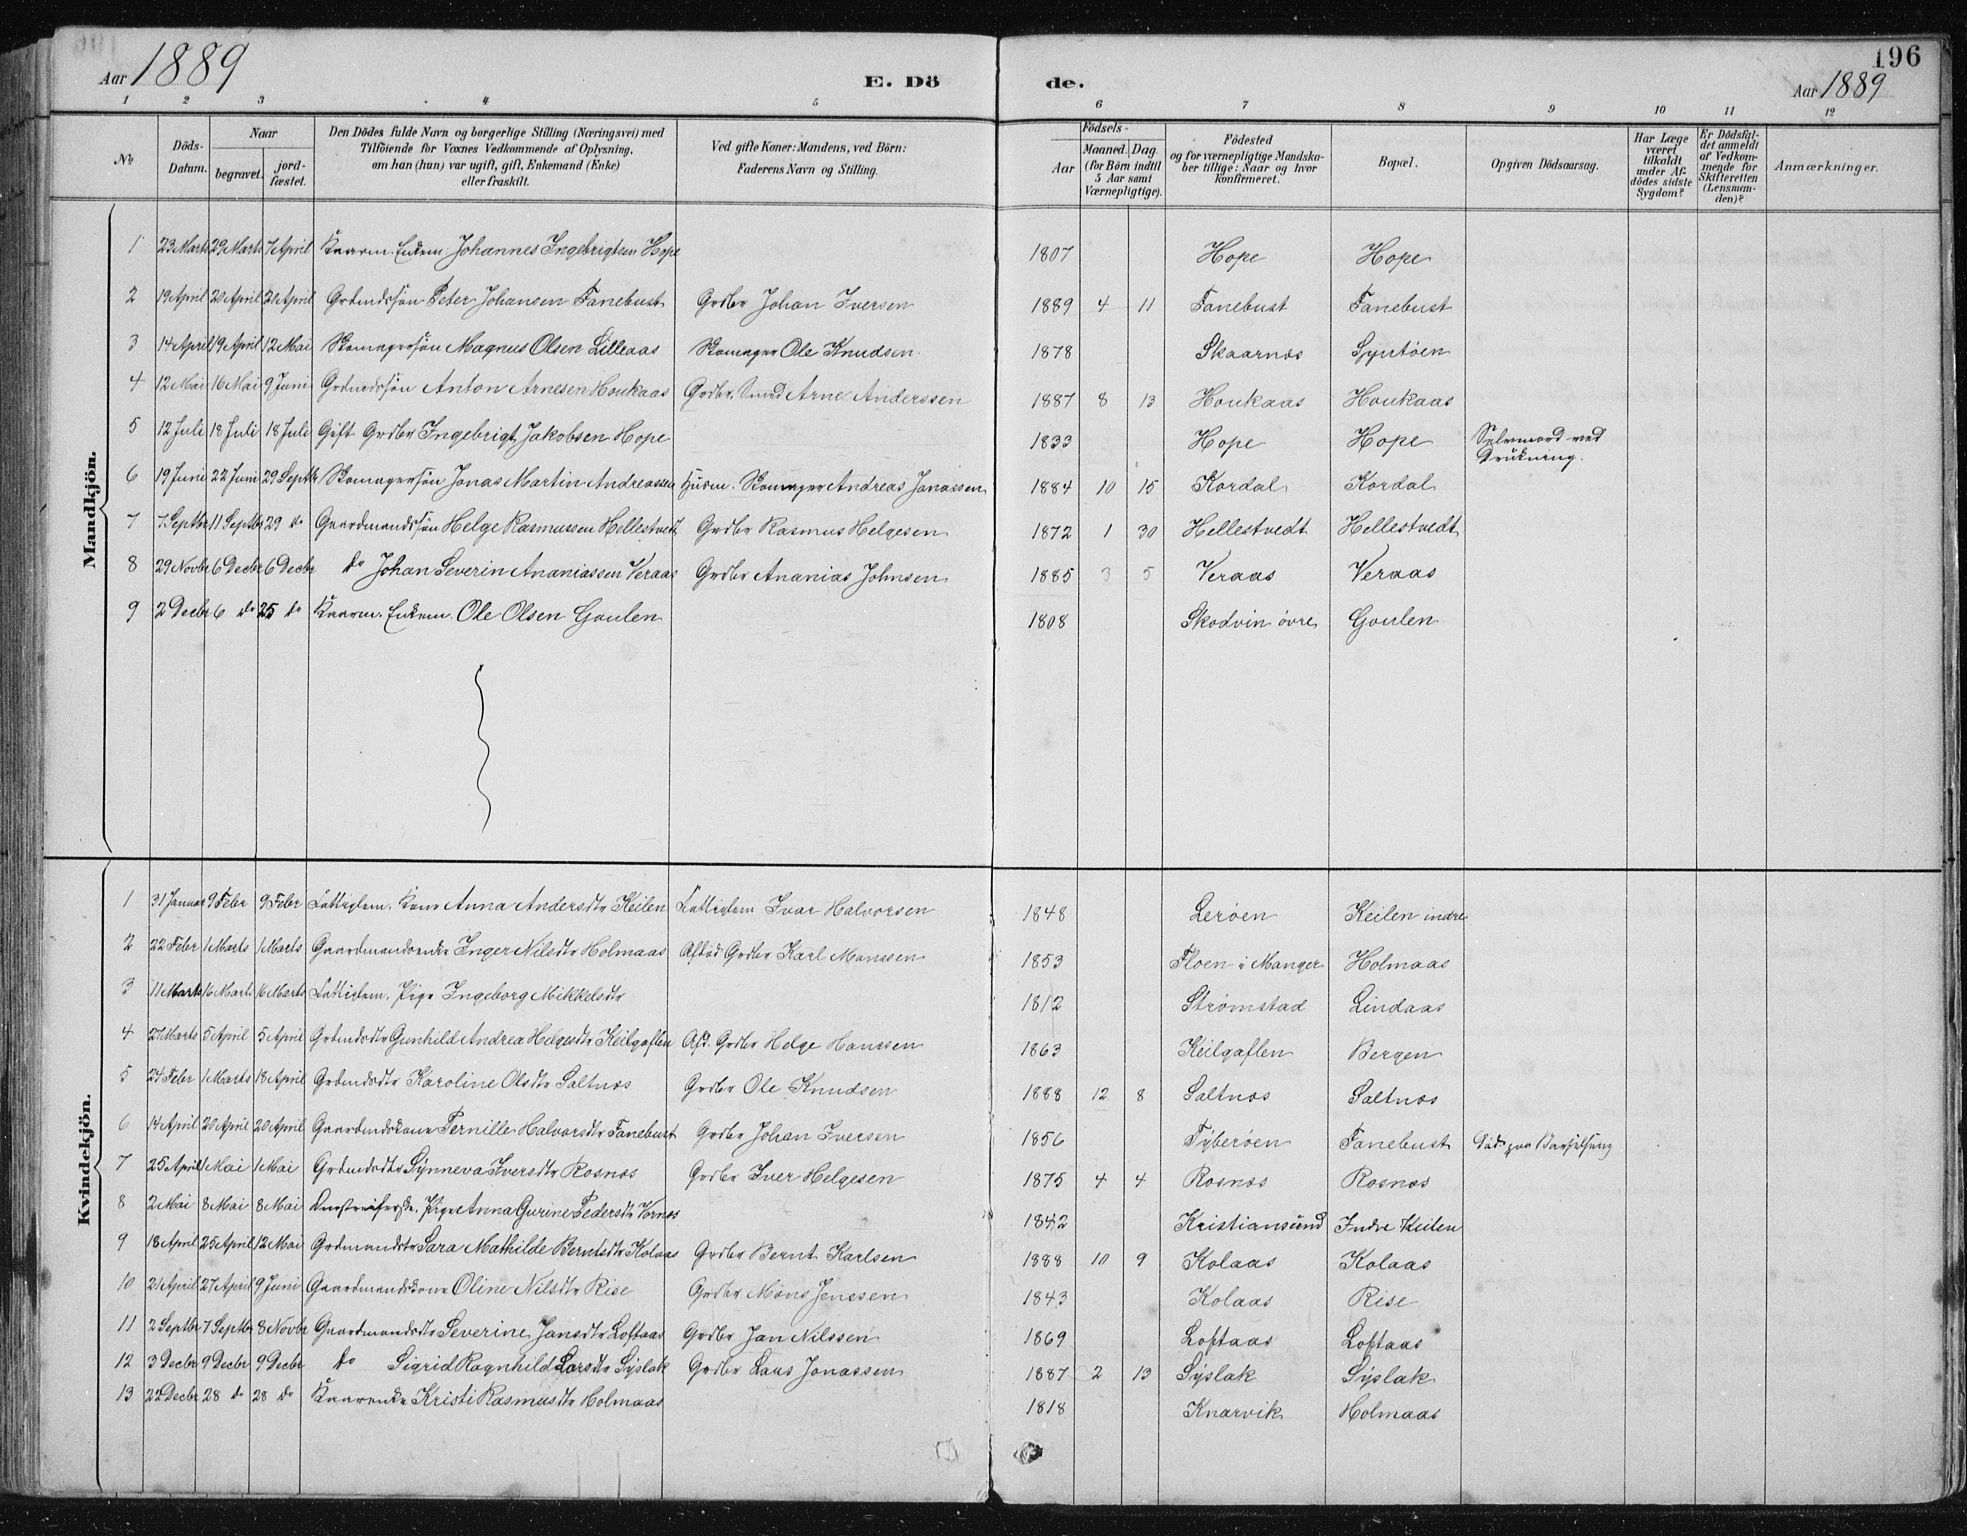 Aar 1889 E. Dö de. 196
Aar 1889
1 2 3 4 5 6 7 8 9 10 11 12
№ Döds-Datum. Naar begravet. jord-fæstet. Den Dödes fulde Navn og borgerlige Stilling (Næringsvei) med Tilföiende for Voxnes Vedkommende af Oplysning, om han (hun) var ugift, gift, Enkemand (Enke) eller fraskilt. Ved gifte Koner: Mandens, ved Börn: Faderens Navn og Stilling. Födsels- Aar Maaned. Dag. (for Börn indtil 5 Aar samt Værnepligtige). Födested og for værnepligtige Mandskaber tillige: Naar og hvor konfirmeret. Bopæl. Opgiven Dödsaarsag. Har Læge været tilkaldt under Afdödes sidste Sygdom? Er Dödsfaldet anmeldt af Vedkommende for Skifteretten (Lensmanden)? Anmærkninger.
Mandkjön.
1 23 Marts 29 Marts 7 April Kaarm. Enkem. Johannes Ingebrigtsen Hope 1807 Hope Hope
2 19 April 20 April 20 April Grdmdssøn Peter Johansen Fanebust Grdbr Johan Iversen 1889 4 11 Fanebust Fanebust
3 14 April 19 April 12 Mai Skomagersøn Magnus Olsen Lilleaas Skomager Ole Knudsen 1878 Skaarnæs Syntøen
4 12 Mai 16 Mai 9 Juni Grdmdssøn Anton Arnesen Houkaas Grdbr. Smed Arne Anderssen 1887 8 13 Houkaas Houkaas
5 12 Juli 18 Juli 18 Juli Gift Grdbr Ingebrigt Jakobsen Hope 1833 Hope Hope Selvmord ved Drukning.
6 19 Juni 22 Juni 29 Septbr Skomagersøn Jonas Martin Andreassen Husm. Skomager Andreas Jonassen 1884 10 15 Kordal Kordal
7 7 Septbr 11 Septbr 29 do Gaardmandssøn Helge Rasmussen Hellestvedt Grdbr Rasmus Helgesen 1872 1 30 Hellestvedt Hellestvedt
8 29 Novbr 6 Decbr 6 Decbr do Johan Severin Ananiassen Veraas Grdbr Ananias Johnsen 1885 3 5 Veraas Veraas
9 2 Decbr 6 do 25 do Kaarm. Enkem. Ole Olsen Goulen 1808 Skodvin øvre Goulen
Kvindekjön.
1 31 Januar 9 Febr 9 Febr Fattiglem. Kone Anna Andersdtr Keilen Fattiglem Ivar Halvorsen 1848 Lerøen Keilen indre
2 22 Febr 1 Marts 1 Marts Gaardmandsenke Inger Nilsdtr Holmaas Afdød Grdbr Karl Monssen 1853 Floen i Manger Holmaas
3 11 Marts 16 Marts 16 Marts Fattiglem. Pige Ingeborg Mikkelsdtr 1812 Strømstad Lindaas
4 27 Marts 5 April 5 April Grdmdsdtr Gunhild Andrea Helgesdtr Keilgaflen Afd. Grdbr Helge Hanssen 1863 Keilgaflen Bergen
5 24 Febr 1 Marts 18 April Grdmdsdtr Karoline Olsdtr Saltnæs Grdbr Ole Knudsen 1888 12 8 Saltnæs Saltnæs
6 14 April 20 April 20 April Gaardmdskone Pernille Halvorsdtr Fanebust Grdbr Johan Iversen 1856 Tyberøen Fanebust Død paa Barselseng
7 25 April 1 Mai 1 Mai Grdmdsdtr Synneva Iversdtr Rosnæs Grdbr Iver Helgesen 1875 4 4 Rosnæs Rosnæs
8 2 Mai 8 Mai 8 Mai Pige Anna Gurine Pedersdtr Vornæs 1842 Kristiansund Indre Keilen
9 18 April 25 April 12 Mai Grdmandsdtr Sara Mathilde Berntsdtr Kolaas Grdbr Bernt Karlsen 1888 10 9 Kolaas Kolaas
10 21 April 27 April 9 Juni Gaardmandskone Oline Nilsdtr Rise Grdbr Mons Jenssen 1843 Kolaas Rise
11 2 Septbr 7 Septbr 8 Novbr Gaardmandsdtr Severine Jansdtr Loftaas Grdbr Jan Nilssen 1869 Loftaas Loftaas
12 3 Decbr 9 Decbr 9 Decbr do Sigrid Ragnhild Larsdtr Syslak Grdbr Lars Jonassen 1887 2 13 Syslak Syslak
13 22 Decbr 28 do 28 do Kaarenke Kristi Rasmusdtr Holmaas 1818 Knarvik Holmaas